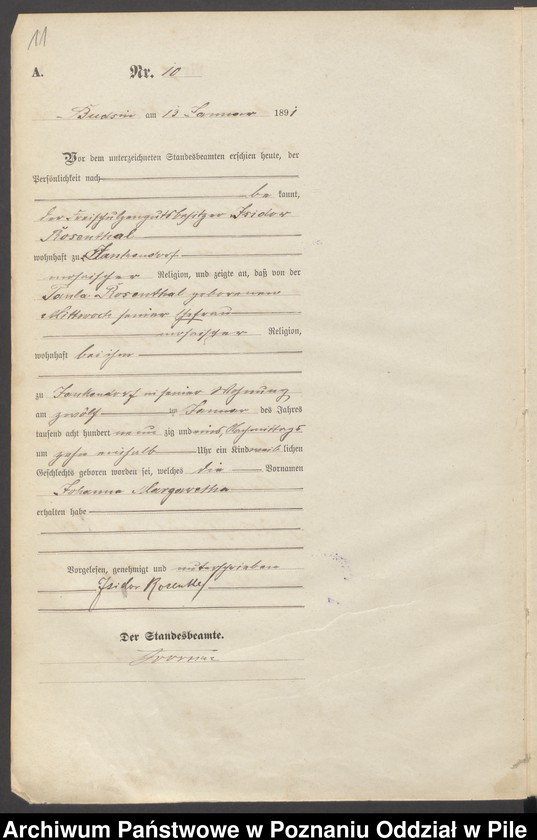 11
A. Nr. 10
Budsin am 13 Januar 1891
Vor dem unterzeichneten Standesbeamten erschien heute, der
Persönlichkeit nach
be kannt,
der Freischulzengutsbesitzer Isidor
Rosenthal
wohnhaft zu Jankendorf
mosaischer Religion, und zeigte an, daß von der
Rosenthal geborenen
Mittwoch seiner Ehefrau
mosaischer Religion,
wohnhaft bei ihm
zu Jankendorf in seiner Wohnung
am zwölften Januar des Jahres
tausend acht hundert neun zig und eins, Nachmittags
um zehn einhalb Uhr ein Kind weib lichen
Geschlechts geboren worden sei, welches die Vornamen
Johanna Margaretha
erhalten habe
Vorgelesen, genehmigt und unterschrieben
Isidor Rosenthal
Der Standesbeamte.
Archiwum Państwowe w Poznaniu Oddział w Pile